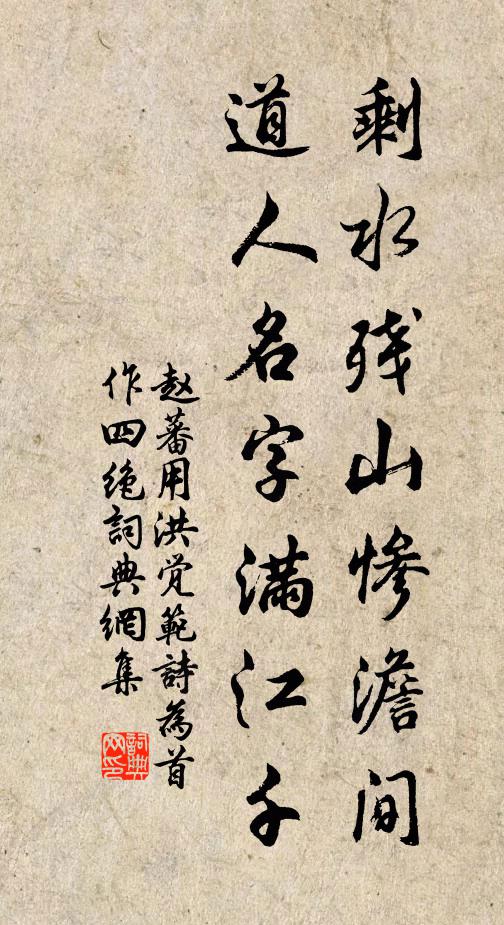 剩水残山惨澹间
道人名字满江千
赵蕃用洪觉範詩為首
作四绝詞典網集
詞典网印